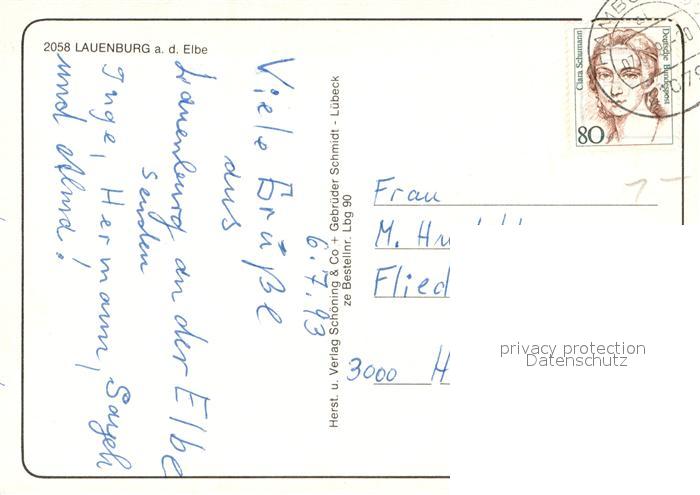 2058 LAUENBURG a. d. Elbe
6.7.93
Viele Grüße
aus
Lauenburg an der Elbe
senden
Inge, Hermann,
und
Herst. u. Verlag Schöning & Co + Gebrüder Schmidt - Lübeck
ze Bestellnr. Lbg 90
Clara Schumann
Deutsche Bundespost
80
Frau
M.
Flied
3000 H
privacy protection
Datenschutz